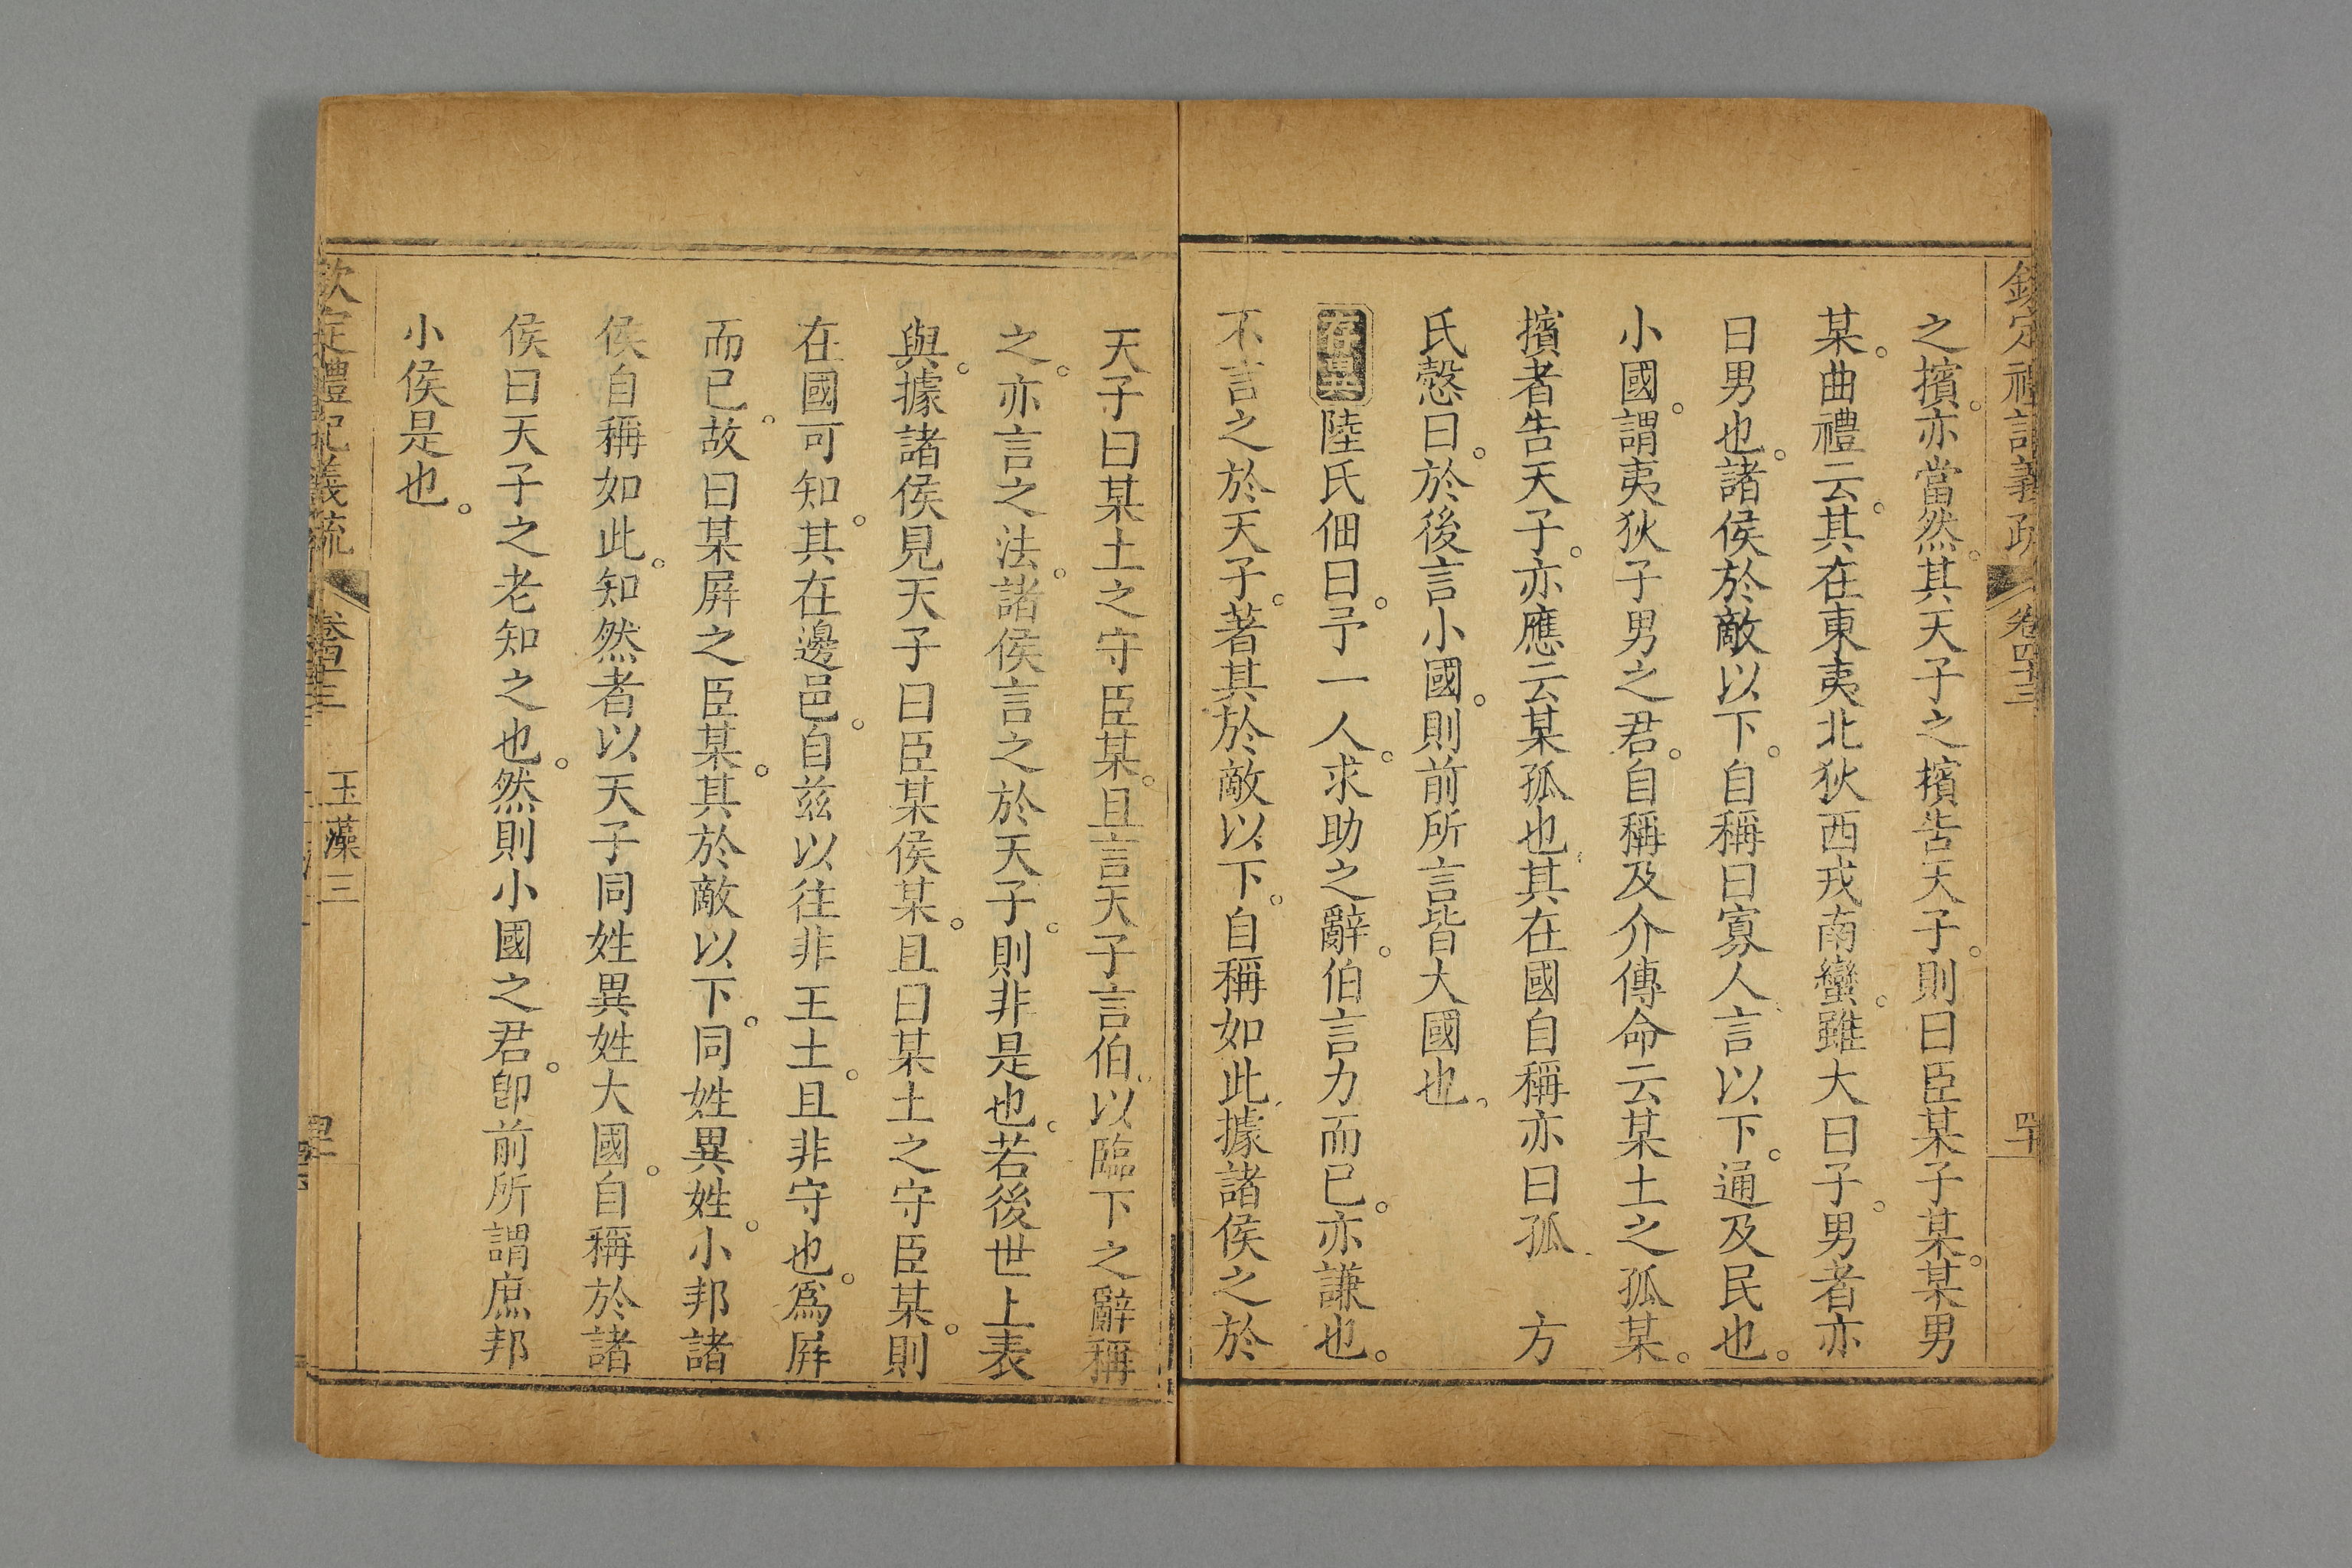 欽定禮記義疏 卷四十三 四十
之擯。亦當然。其天子之擯告天子。則曰臣某子某。某男
某。曲禮云。其在東夷北狄西戎南蠻。雖大曰子。男者亦
曰男也。諸侯於敵以下。自稱曰寡人。言以下。通及民也。
小國。謂夷狄子男之君。自稱及介傳命云某土之孤某。
擯者告天子。亦應云某孤也。其在國自稱亦曰孤 方
氏慤曰。於後言小國。則前所言皆大國也。
存異 陸氏佃曰。予一人。求助之辭。伯言力而已。亦謙也。
不言之於天子。著其於敵以下。自稱如此。據諸侯之於
天子曰某土之守臣某。且言天子言伯。以臨下之辭稱
之。亦言之法。諸侯言之於天子。則非是也。若後世上表
與。據諸侯見天子曰臣某侯某。且曰某土之守臣某。則
在國可知。其在邊邑。自玆以往非王土。且非守也。爲屛
而已。故曰某屛之臣某。其於敵以下。同姓異姓。小邦諸
侯自稱如此。知然者以天子同姓異姓大國。自稱於諸
侯曰天子之老知之也。然則小國之君。卽前所謂庶邦
小侯是也。
欽定禮記義疏 卷四十三 玉藻三